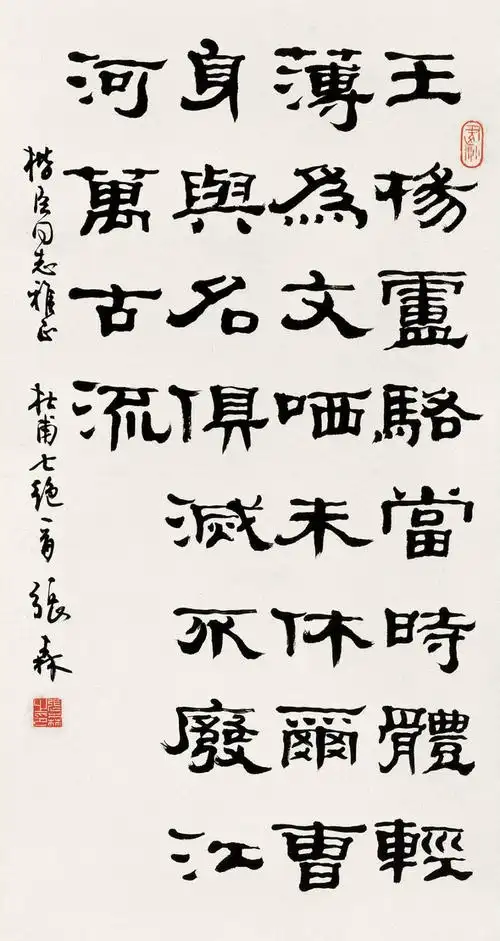 王楊盧駱當時體輕
薄爲文哂未休爾曹
身與名俱滅不廢江
河萬古流
楷臣同志雅正 杜甫七絕一首 張森
張森之印